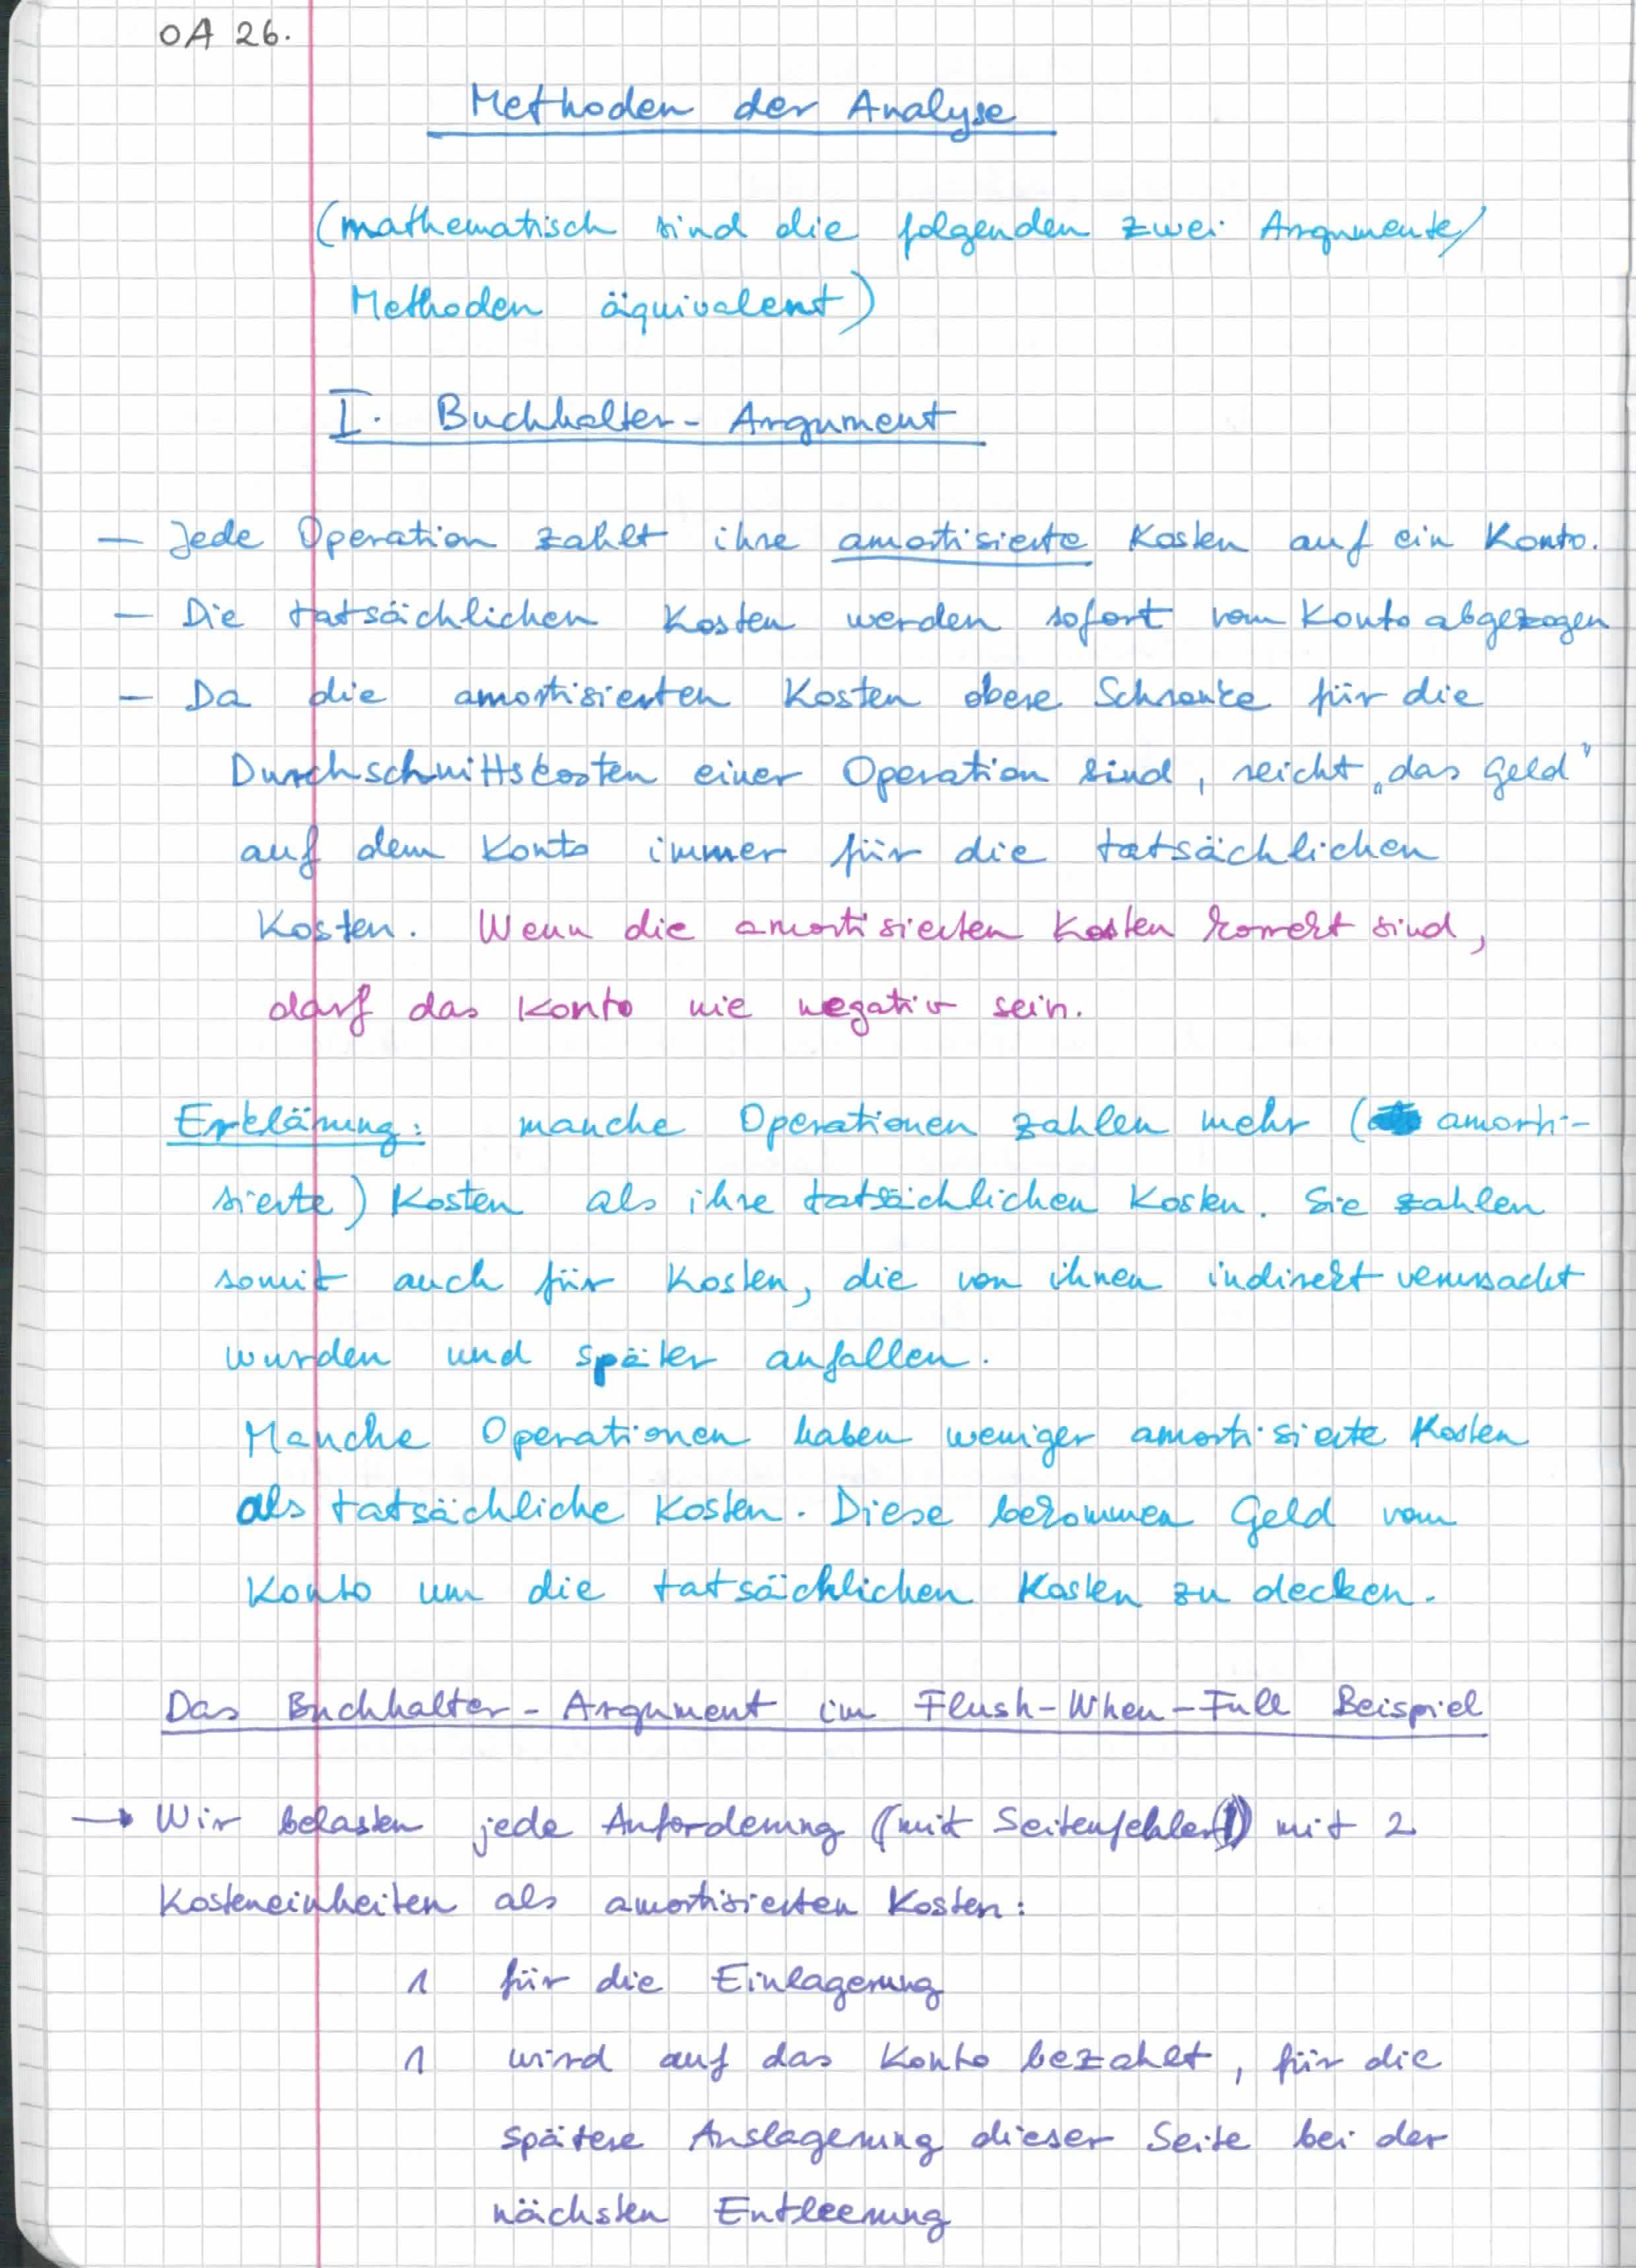 OA 26.
Methoden der Analyse
(mathematisch sind die folgenden zwei Argumente/
Methoden äquivalent)
I. Buchhalter-Argument
— Jede Operation zahlt ihre amortisierte Kosten auf ein Konto.
— Die tatsächlichen Kosten werden sofort vom Konto abgezogen
— Da die amortisierten Kosten obere Schranke für die
Durchschnittskosten einer Operation sind, reicht „das Geld"
auf dem Konto immer für die tatsächlichen
Kosten. Wenn die amortisierten Kosten korrekt sind,
darf das Konto nie negativ sein.
Erklärung: manche Operationen zahlen mehr (amorti-
sierte) Kosten als ihre tatsächlichen Kosten. Sie zahlen
somit auch für Kosten, die von ihnen indirekt verursacht
wurden und später anfallen.
Manche Operationen haben weniger amortisierte Kosten
als tatsächliche Kosten. Diese bekommen Geld vom
Konto um die tatsächlichen Kosten zu decken.
Das Buchhalter-Argument im Flush-When-Full Beispiel
→ Wir belasten jede Anforderung (mit Seitenfehler) mit 2
Kosteneinheiten als amortisierten Kosten:
1 für die Einlagerung
1 wird auf das Konto bezahlt, für die
spätere Auslagerung dieser Seite bei der
nächsten Entleerung